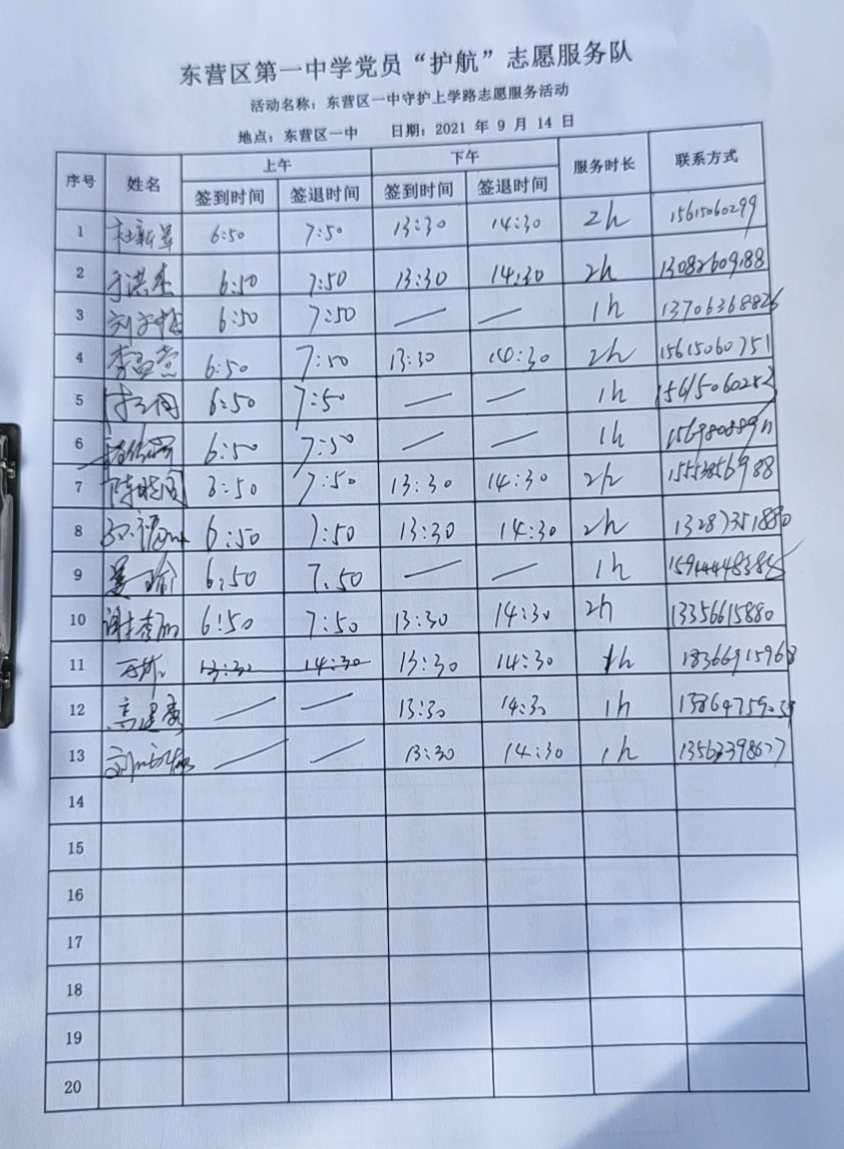 东营区第一中学党员“护航”志愿服务队
活动名称：东营区一中守护上学路志愿服务活动
地点：东营区一中 日期：2021 年 9 月 14 日
序号 姓名 上午 下午 服务时长 联系方式
签到时间 签退时间 签到时间 签退时间
1 杜新军 6:50 7:50 13:30 14:30 2h 15615060299
2 于洪 6:50 7:50 13:30 14:30 2h 13082609188
3 6:50 7:50 — — 1h 13706368826
4 李 6:50 7:50 13:30 14:30 2h 15615060751
5 6:50 7:50 — — 1h
6 6:50 7:50 — — 1h
7 陈晓 6:50 7:50 13:30 14:30 2h 15553856988
8 6:50 7:50 13:30 14:30 2h 13287351880
9 6:50 7.50 — — 1h
10 谢 6:50 7:50 13:30 14:30 2h 13356615880
11 13:30 14:30 13:30 14:30 1h 18366915968
12 高建 — — 13:30 14:30 1h
13 刘 — — 13:30 14:30 1h 13563398677
14
15
16
17
18
19
20